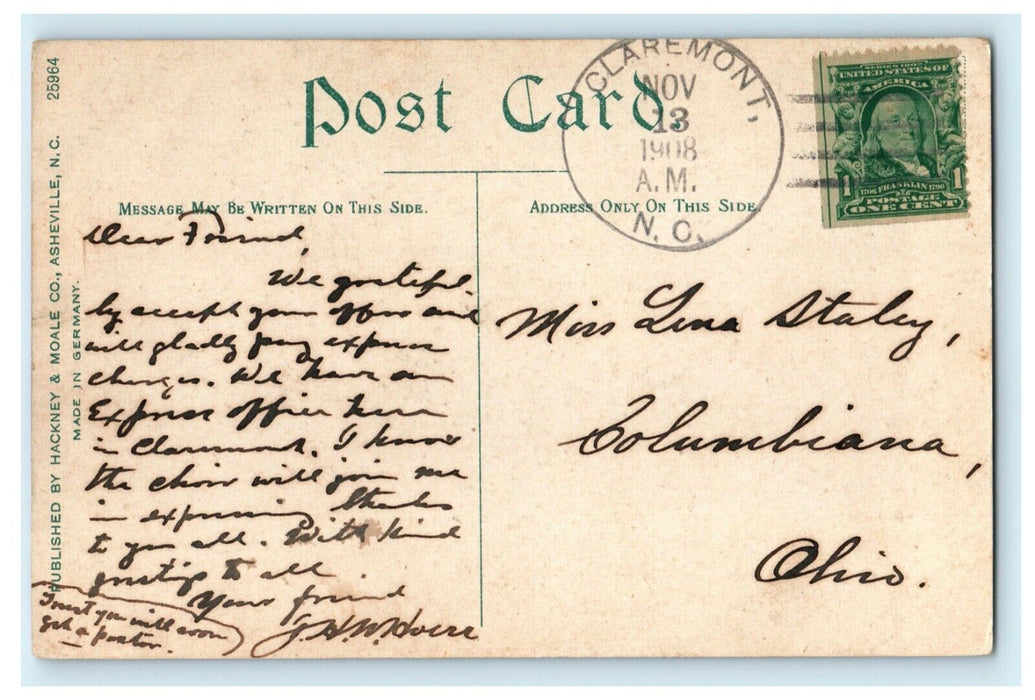 Post Card.
MESSAGE MAY BE WRITTEN ON THIS SIDE.
ADDRESS ONLY ON THIS SIDE.
25964
PUBLISHED BY HACKNEY & MOALE CO., ASHEVILLE, N. C.
MADE IN GERMANY.
CLAREMONT,
NOV
13
1908
A.M.
N. C.
SERIES 1902
UNITED STATES OF
AMERICA
1706 FRANKLIN 1790
1 1
POSTAGE
ONE CENT
Dear Friend,
We grateful-
ly accept your offer and
will gladly pay express
charges. We have an
Express office here
in Claremont. I know
the choir will join me
in expressing thanks
to you all. With kind
greetings to all
Your friend
J. H. W.
Trust you will soon
get a pastor.
Miss Lena Staley,
Columbiana,
Ohio.